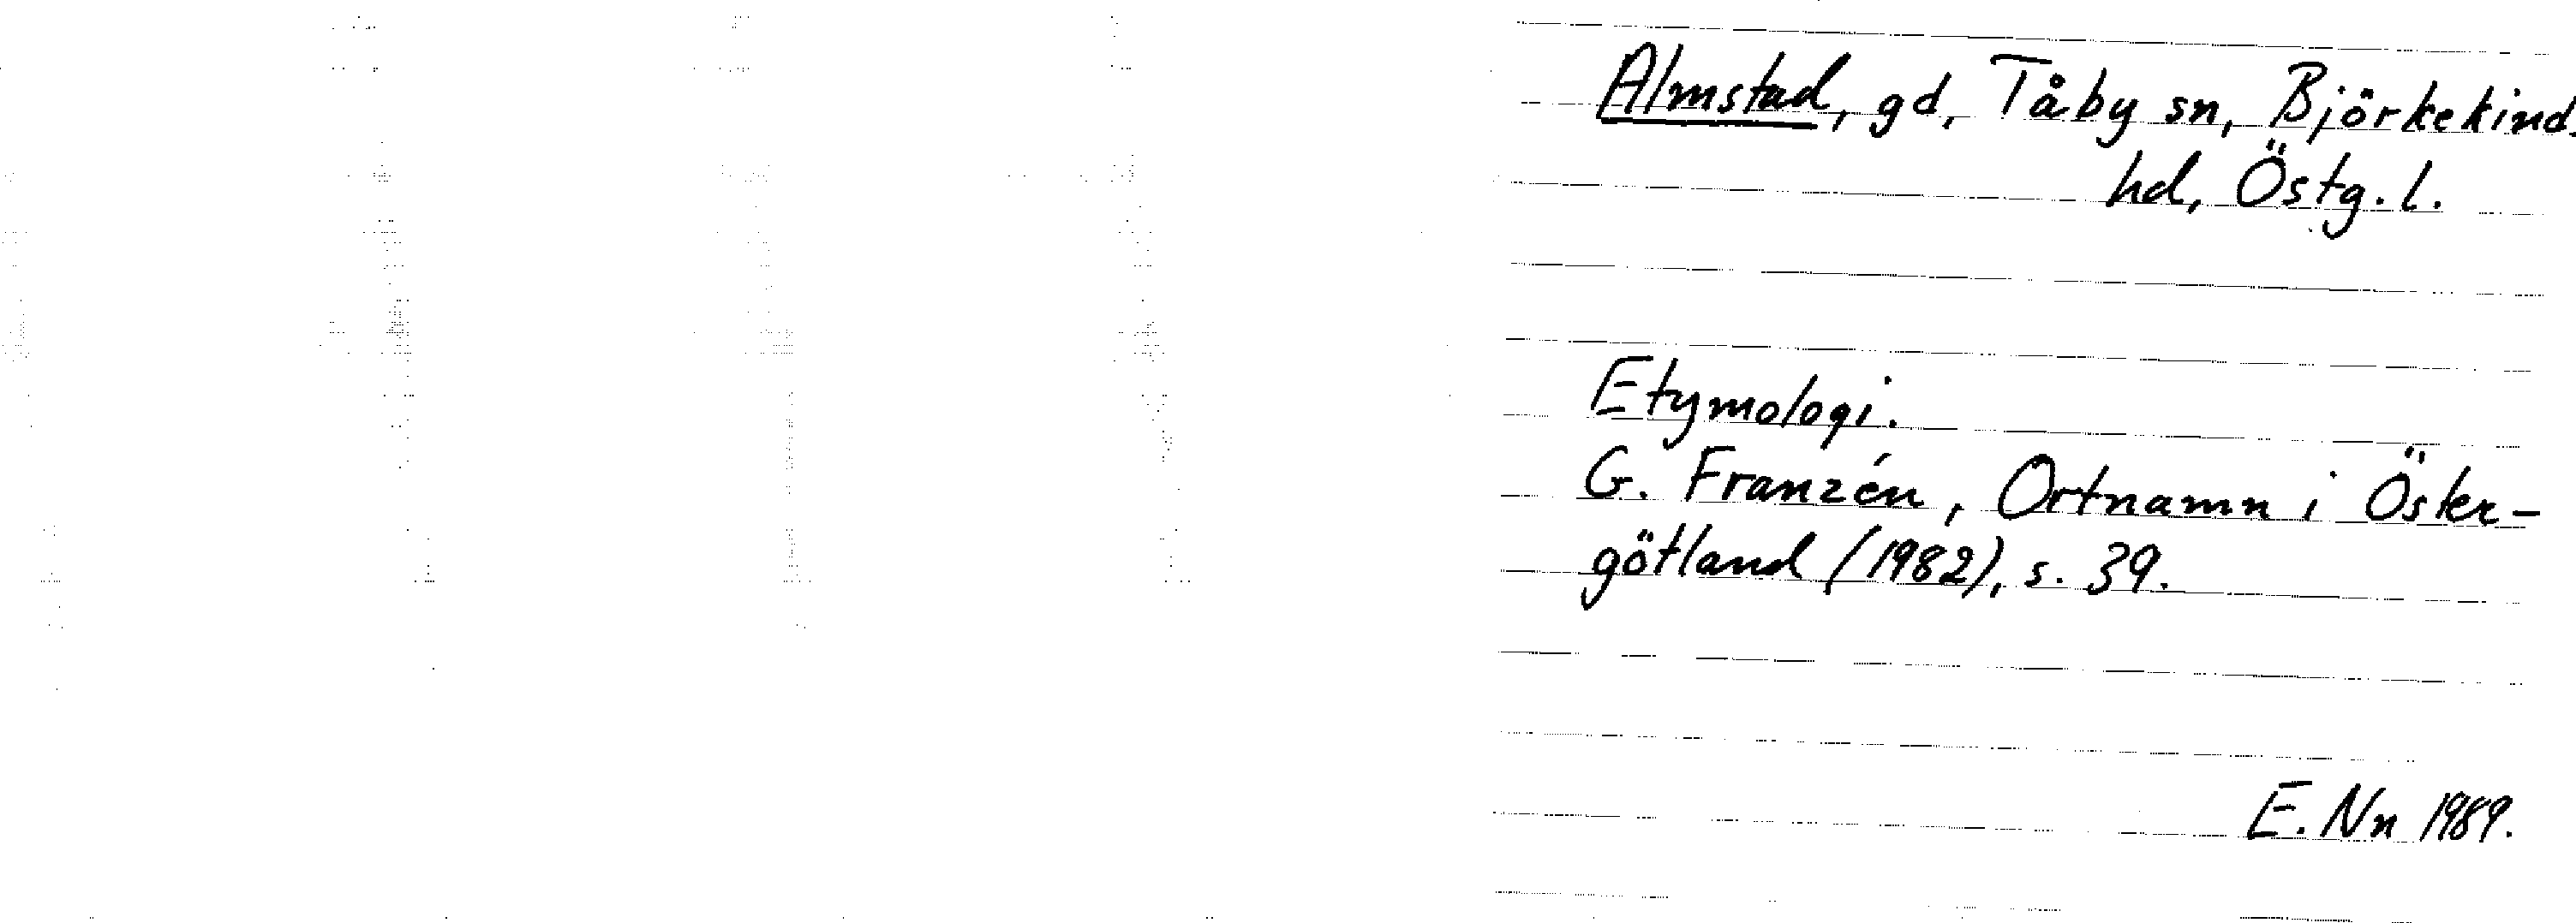 Almstad, gd, Tåby sn, Björkekind.
hd, Östg. l.
Etymologi.
G. Franzén, Ortnamn i Öster-
götland (1982), s. 39.
E. Nn 1989.